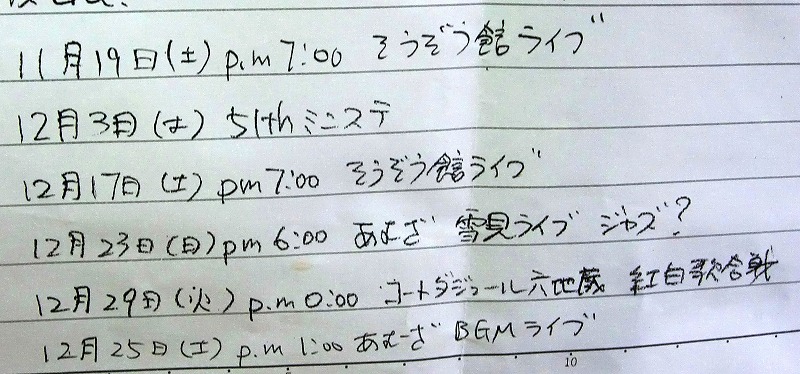 11月19日(土) p.m 7:00 そうぞう館ライブ
12月3日(土) 51th ミニステ
12月17日(土) pm 7:00 そうぞう館ライブ
12月23日(日) pm 6:00 あむざ 雪見ライブ ジャズ?
12月29日(火) p.m 0:00 コートダジュール六地蔵 紅白歌合戦
12月25日(土) p.m 1:00 あむーざ BGMライブ
10